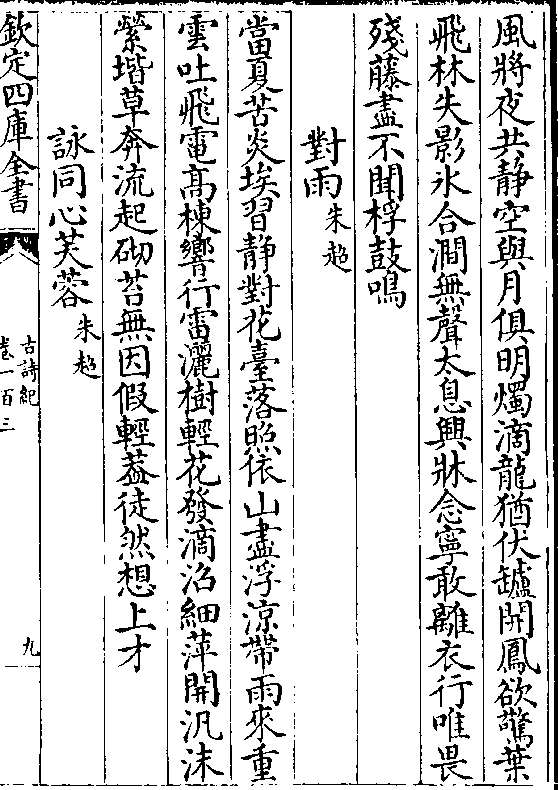 風將夜共靜空與月俱明燭滴龍猶伏鑪開鳳欲驚葉
飛林失影氷合澗無聲太息興牀念寧敢離衣行唯畏
殘藤盡不聞桴鼓鳴
對雨朱超
當夏苦炎埃習静對花臺落照依山盡浮凉帶雨來重
雲吐飛電高棟響行雷灑樹輕花發滴沼細萍開汎沫
縈堦草奔流起砌苔無因假輕蓋徒然想上才
詠同心芙蓉朱超
欽定四庫全書
古詩紀
卷一百三
九